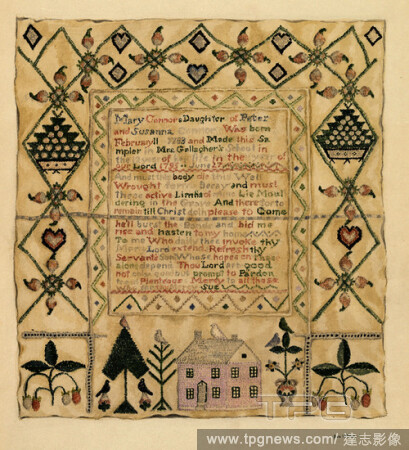 Mary Connor a Daughter of Peter
and Susanna Connor Was born
February 11 and Made this Sa
mpler in Mrs. Gallagher's School in
the of her life in the year of
our Lord
And must this body die this Well
Wrought Decay and must
These active Limbs of mine Lie Moul
dering in the Grave And there for to
remain till Christ doth please to Come
he'll burst the Bonds and bid me
rise and hasten to my home
To me Who daily thee invoke thy
Mercy Lord extend Refresh thy
Servants Soul Whose hopes on
depend Thou Lord art good
not only prompt to Pardon
Plenteous Mercy to all those
SUE
TPG
www.tpgnews.com/達志影像